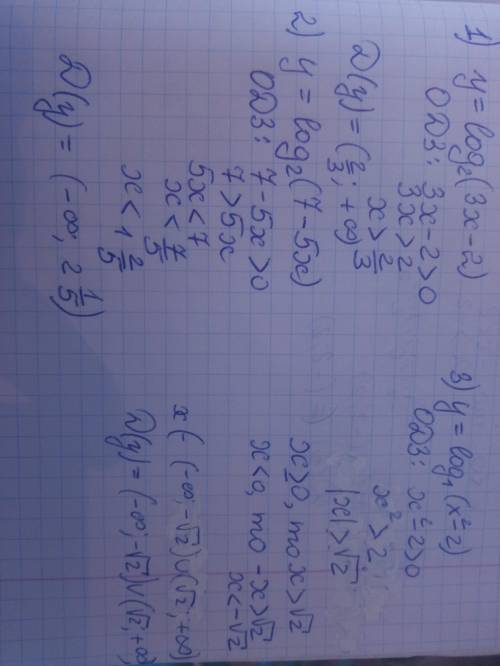 1) y = log₂(3x-2)
ОДЗ: 3x-2>0
3x>2
x>2/3
D(y) = (2/3; +∞)
2) y = log₂(7-5x)
ОДЗ: 7-5x>0
7>5x
5x<7
x<7/5
x<1 2/5
D(y) = (-∞; 2 1/5)
3) y = log₁(x²-2)
ОДЗ: x²-2>0
x²>2
|x|>√2
x>0, то x>√2
x<0, то -x>√2
x<-√2
x ∈ (-∞; -√2)∪(√2; +∞)
D(y) = (-∞; -√2)∪(√2; +∞)